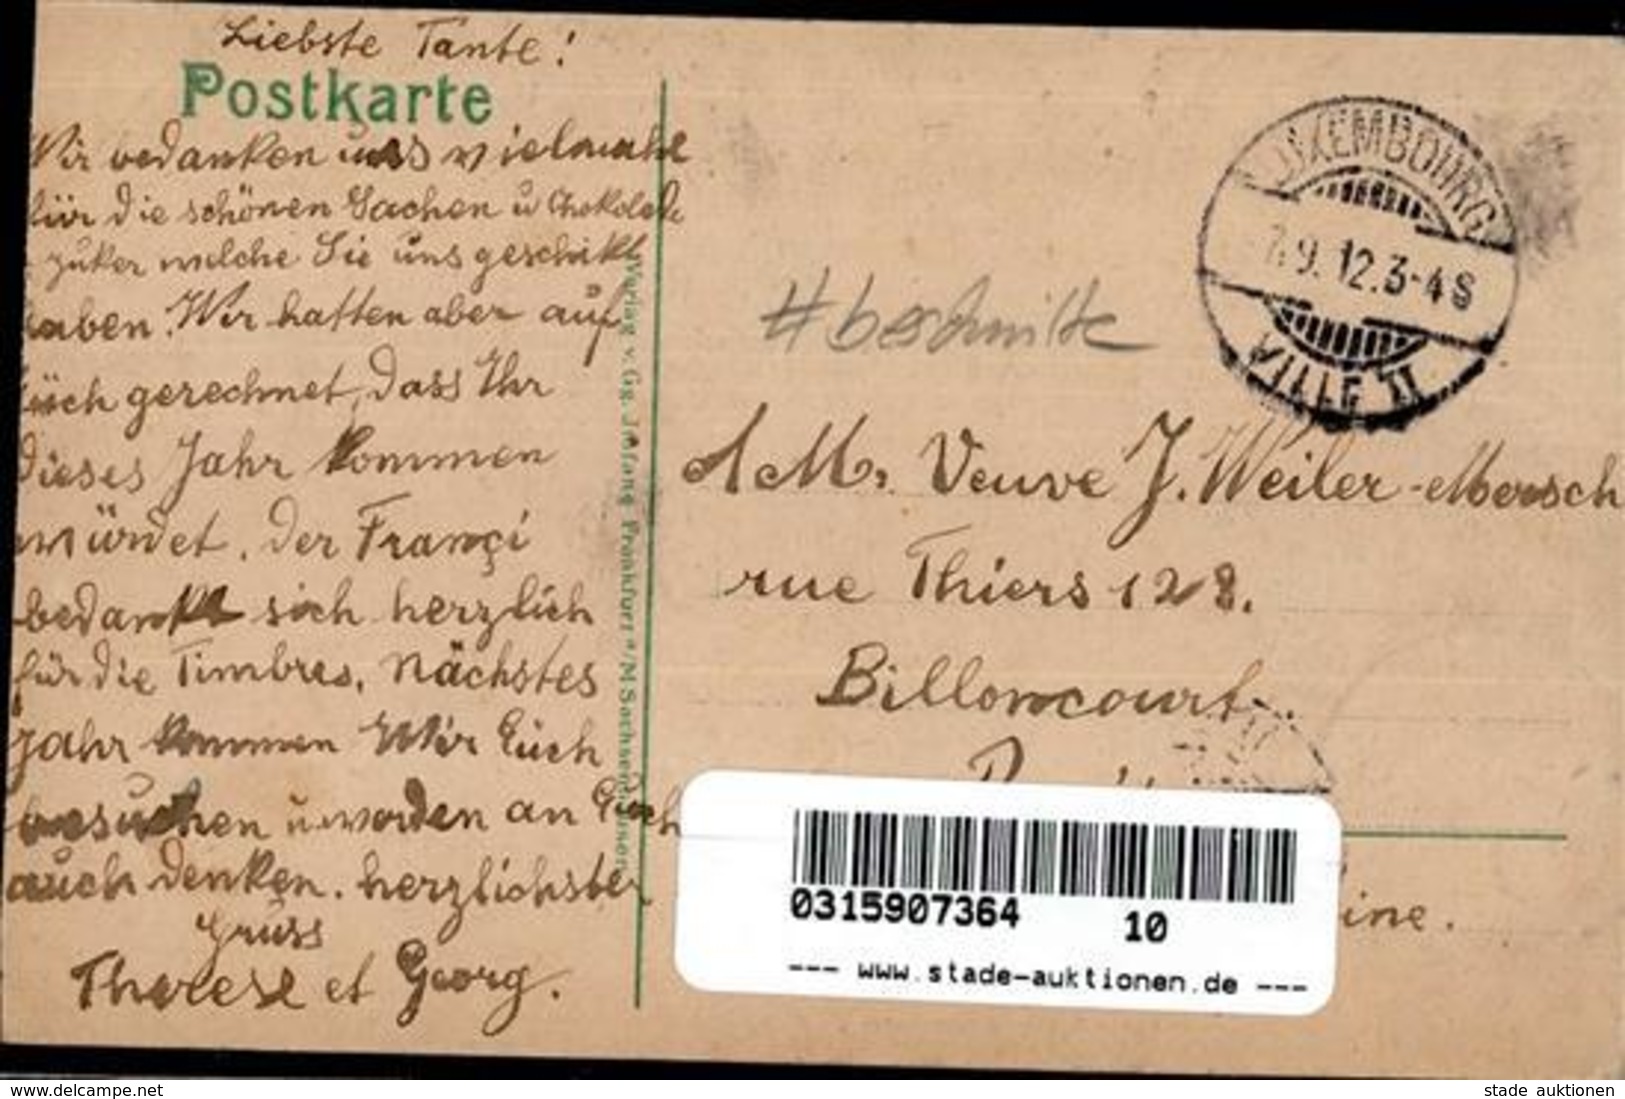 Liebste Tante!
Postkarte
Wir bedanken uns vielmahl
für die schönen Sachen u Chokolade
zuker welche Sie uns geschikt
haben. Wir hatten aber auf
Eüch gerechnet, dass Ihr
dieses Jahr kommen
würdet. Der Françi
bedankt sich herzlich
für die Timbres. Nächstes
Jahr kommen Wir Eüch
besuchen u werden an Eüch
auch denken. herzlichster
Gruss
Therese et Georg.
Verlag v. Gg. Frankfurt a/M Sachsenhausen
LUXEMBOURG
7.9.12.3-4S
VILLE II
#beschnitte
A Mme Veuve J. Weiler-Mersch
rue Thiers 128.
Billancourt
ine.
0315907364 10
--- www.stade-auktionen.de ---
www.delcampe.net
stade auktionen